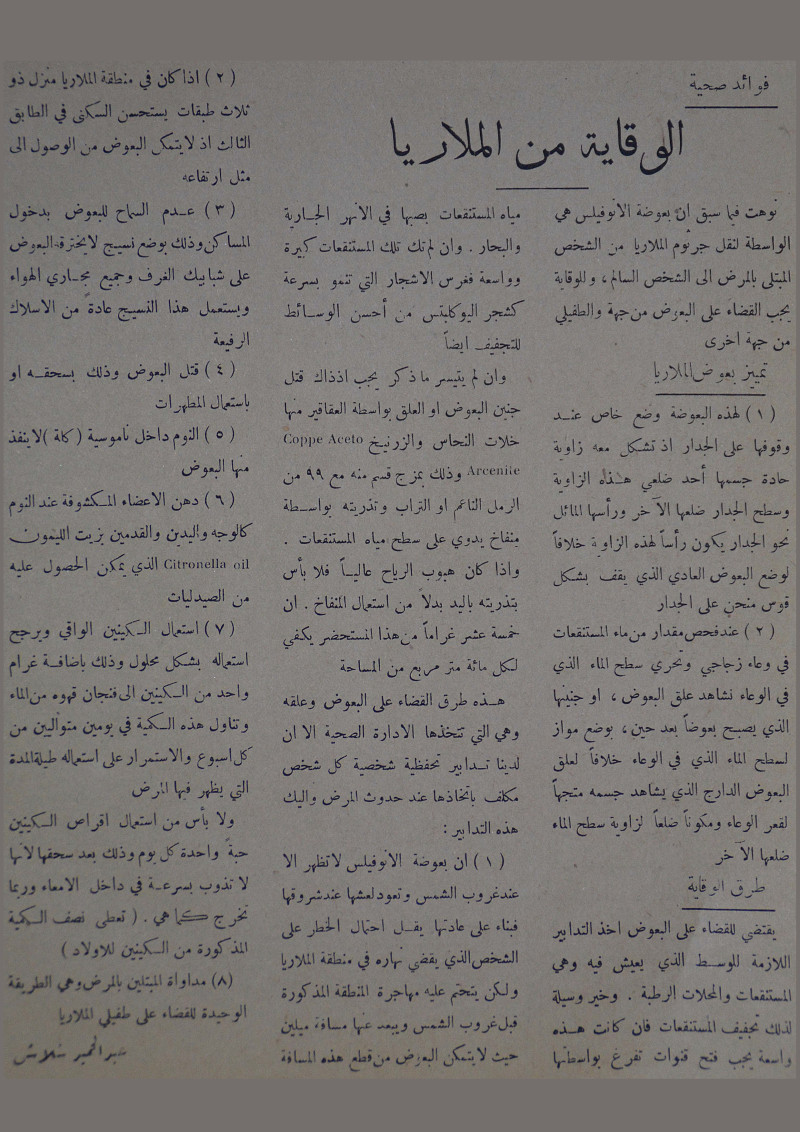 فوائد صحية
الوقاية من الملاريا
نوهت فيما سبق ان بعوضة الانوفيلس هي
الواسطة لنقل جرثوم الملاريا من الشخص
المبتلى بالمرض الى الشخص السالم ، وللوقاية
يجب القضاء على البعوض من جهة والطفيلي
من جهة اخرى
تمييز بعوض الملاريا
( ١ ) لهذه البعوضة وضع خاص عند
وقوفها على الجدار اذ تشكل معه زاوية
حادة جسمها أحد ضلعي هذه الزاوية
وسطح الجدار ضلعها الآخر ورأسها المائل
نحو الجدار يكون رأساً لهذه الزاوية خلافاً
لوضع البعوض العادي الذي يقف بشكل
قوس منحن على الجدار
( ٢ ) عند فحص مقدار من ماء المستنقعات
في وعاء زجاجي وتحري سطح الماء الذي
في الوعاء نشاهد علق البعوض ، او جنينها
الذي يصبح بعوضاً بعد حين ، بوضع مواز
لسطح الماء الذي في الوعاء خلافاً لعلق
البعوض الدارج الذي يشاهد جسمه متجهاً
لقعر الوعاء ومكوناً ضلعاً لزاوية سطح الماء
ضلعها الآخر
طرق الوقاية
يقتضي للقضاء على البعوض اخذ التدابير
اللازمة للوسط الذي يعيش فيه وهي
المستنقعات والمحلات الرطبة . وخير وسيلة
لذلك تجفيف المستنقعات فان كانت هذه
واسعة يجب فتح قنوات تفرغ بواسطتها
مياه المستنقعات بصبها في الانهر الجارية
والبحار . وان لم تك تلك المستنقعات كبيرة
وواسعة فغرس الاشجار التي تنمو بسرعة
كشجر اليوكالبتس من أحسن الوسائط
للتجفيف ايضاً
وان لم يتيسر ما ذكر يجب اذذاك قتل
جنين البعوض او العلق بواسطة العقاقير منها
خلات النحاس والزرنيخ Coppe Aceto
Arcenite وذلك بمزج قسم منه مع ٩٩ من
الرمل الناعم او التراب وتذريته بواسطة
منفاخ يدوي على سطح مياه المستنقعات .
واذا كان هبوب الرياح عالياً فلا بأس
بتذريته باليد بدلاً من استعمال المنفاخ . ان
خمسة عشر غراماً من هذا المستحضر يكفي
لكل مائة متر مربع من المساحة
هذه طرق القضاء على البعوض وعلقه
وهي التي تتخذها الادارة الصحية الا ان
لدينا تدابير تحفظية شخصية كل شخص
مكلف بإتخاذها عند حدوث المرض واليك
هذه التدابير :
( ١ ) ان بعوضة الانوفيلس لا تظهر الا
عند غروب الشمس وتعود لعشها عند شروقها
فبناء على عادتها يقل احتمال الخطر على
الشخص الذي يقضي نهاره في منطقة الملاريا
ولكن يتحتم عليه مهاجرة المنطقة المذكورة
قبل غروب الشمس ويبعد عنها مسافة ميلين
حيث لا يتمكن البعوض من قطع هذه المسافة
( ٢ ) اذا كان في منطقة الملاريا منزل ذو
ثلاث طبقات يستحسن السكنى في الطابق
الثالث اذ لا يتمكن البعوض من الوصول الى
مثل ارتفاعه
( ٣ ) عدم السماح للبعوض بدخول
المساكن وذلك بوضع نسيج لا يخترقه البعوض
على شبابيك الغرف وجميع مجاري الهواء
ويستعمل هذا النسيج عادة من الاسلاك
الرفيعة
( ٤ ) قتل البعوض وذلك بسحقه او
باستعمال المطهرات
( ٥ ) النوم داخل ناموسية ( كلة ) لا ينفذ
منها البعوض
( ٦ ) دهن الاعضاء المكشوفة عند النوم
كالوجه واليدين والقدمين بزيت الليمون
Citronella oil الذي يمكن الحصول عليه
من الصيدليات
( ٧ ) استعمال الكينين الواقي ويرجح
استعماله بشكل محلول وذلك باضافة غرام
واحد من الكينين الى فنجان قهوه من الماء
وتناول هذه الكمية في يومين متواليين من
كل اسبوع والاستمرار على استعماله طيلة المدة
التي يظهر فيها المرض
ولا بأس من استعمال اقراص الكينين
حبة واحدة كل يوم وذلك بعد سحقها لانها
لا تذوب بسرعة في داخل الامعاء وربما
تخرج كما هي . ( تعطى نصف الكمية
المذكورة من الكينين للاولاد )
( ٨ ) مداواة المبتلين بالمرض وهي الطريقة
الوحيدة للقضاء على طفيلي الملاريا
عبد الحميد شلاش